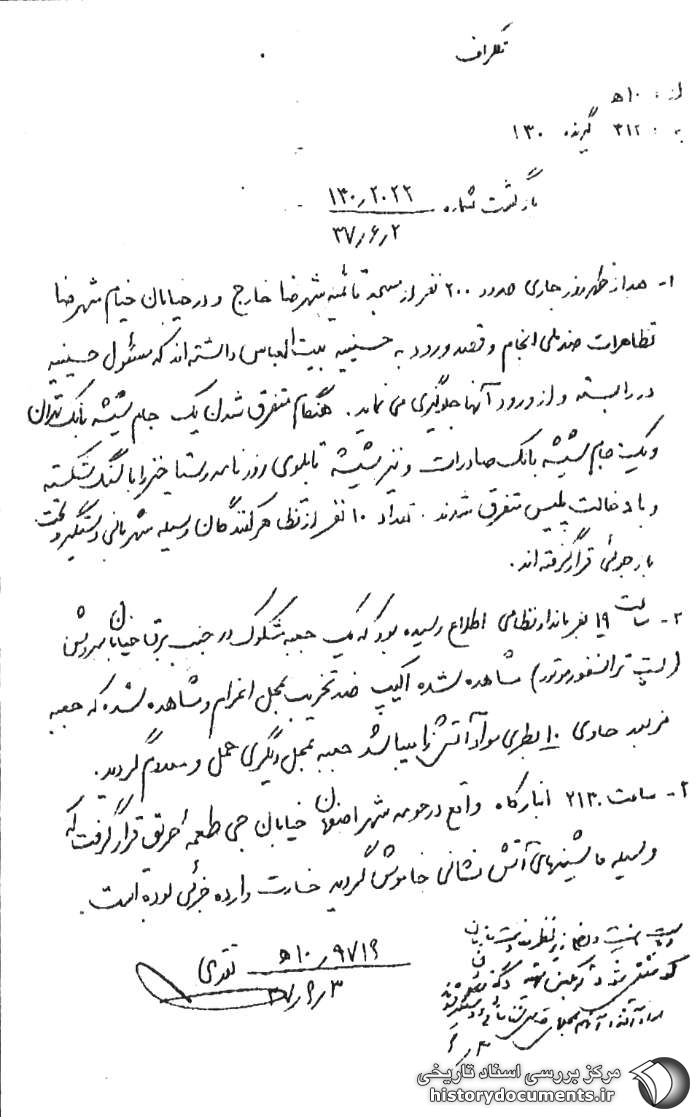 تلگراف
از : ۱۰ ه‍
به : ۳۱۲ گیرنده ۱۳۰
بازگشت شماره ۱۳۰٫۲۰۲۲
۳۷٫۶٫۲
۱- بعد از ظهر روز جاری حدود ۲۰۰ نفر از مسجد قائمیه شهرضا خارج و در خیابان خیام شهرضا
تظاهرات ضد ملی انجام و قصد ورود به حسینیه بیت العباس داشته اند که مسئول حسینیه
در را بسته و از ورود آنها جلوگیری می نماید . هنگام متفرق شدن یک جام شیشه بانک تهران
و یک جام شیشه بانک صادرات و نیز شیشه تابلوی روزنامه رستاخیز را با سنگ شکسته
و با دخالت پلیس متفرق شدند . تعداد ۱۰ نفر از تظاهر کنندگان وسیله شهربانی دستگیر و تحت
بازجوئی قرار گرفته اند .
۲- ساعت ۱۹ فرماندار نظامی اطلاع رسیده بود که یک جعبه مشکوک در جنب برق خیابان
(پست ترانسفورمورتور) مشاهده شده اکیپ ضد تخریب بمحل اعزام و مشاهده شده که جعبه
مزبور حاوی ۱۰ بطری مواد آتش زا میباشد جعبه بمحل دیگری حمل و معدوم گردید .
۳- ساعت ۲۱۳۰ انبار کاه واقع در حومه شهر اصفهان خیابان جی طعمه حریق قرار گرفت که
وسیله ماشینهای آتش نشانی خاموش گردید خسارت وارده جزئی بوده است .
۱۰ه‍٫۹۷۱۹ تقوی
۳۷٫۶٫۳
مرکز بررسی اسناد تاریخی
historydocuments.ir